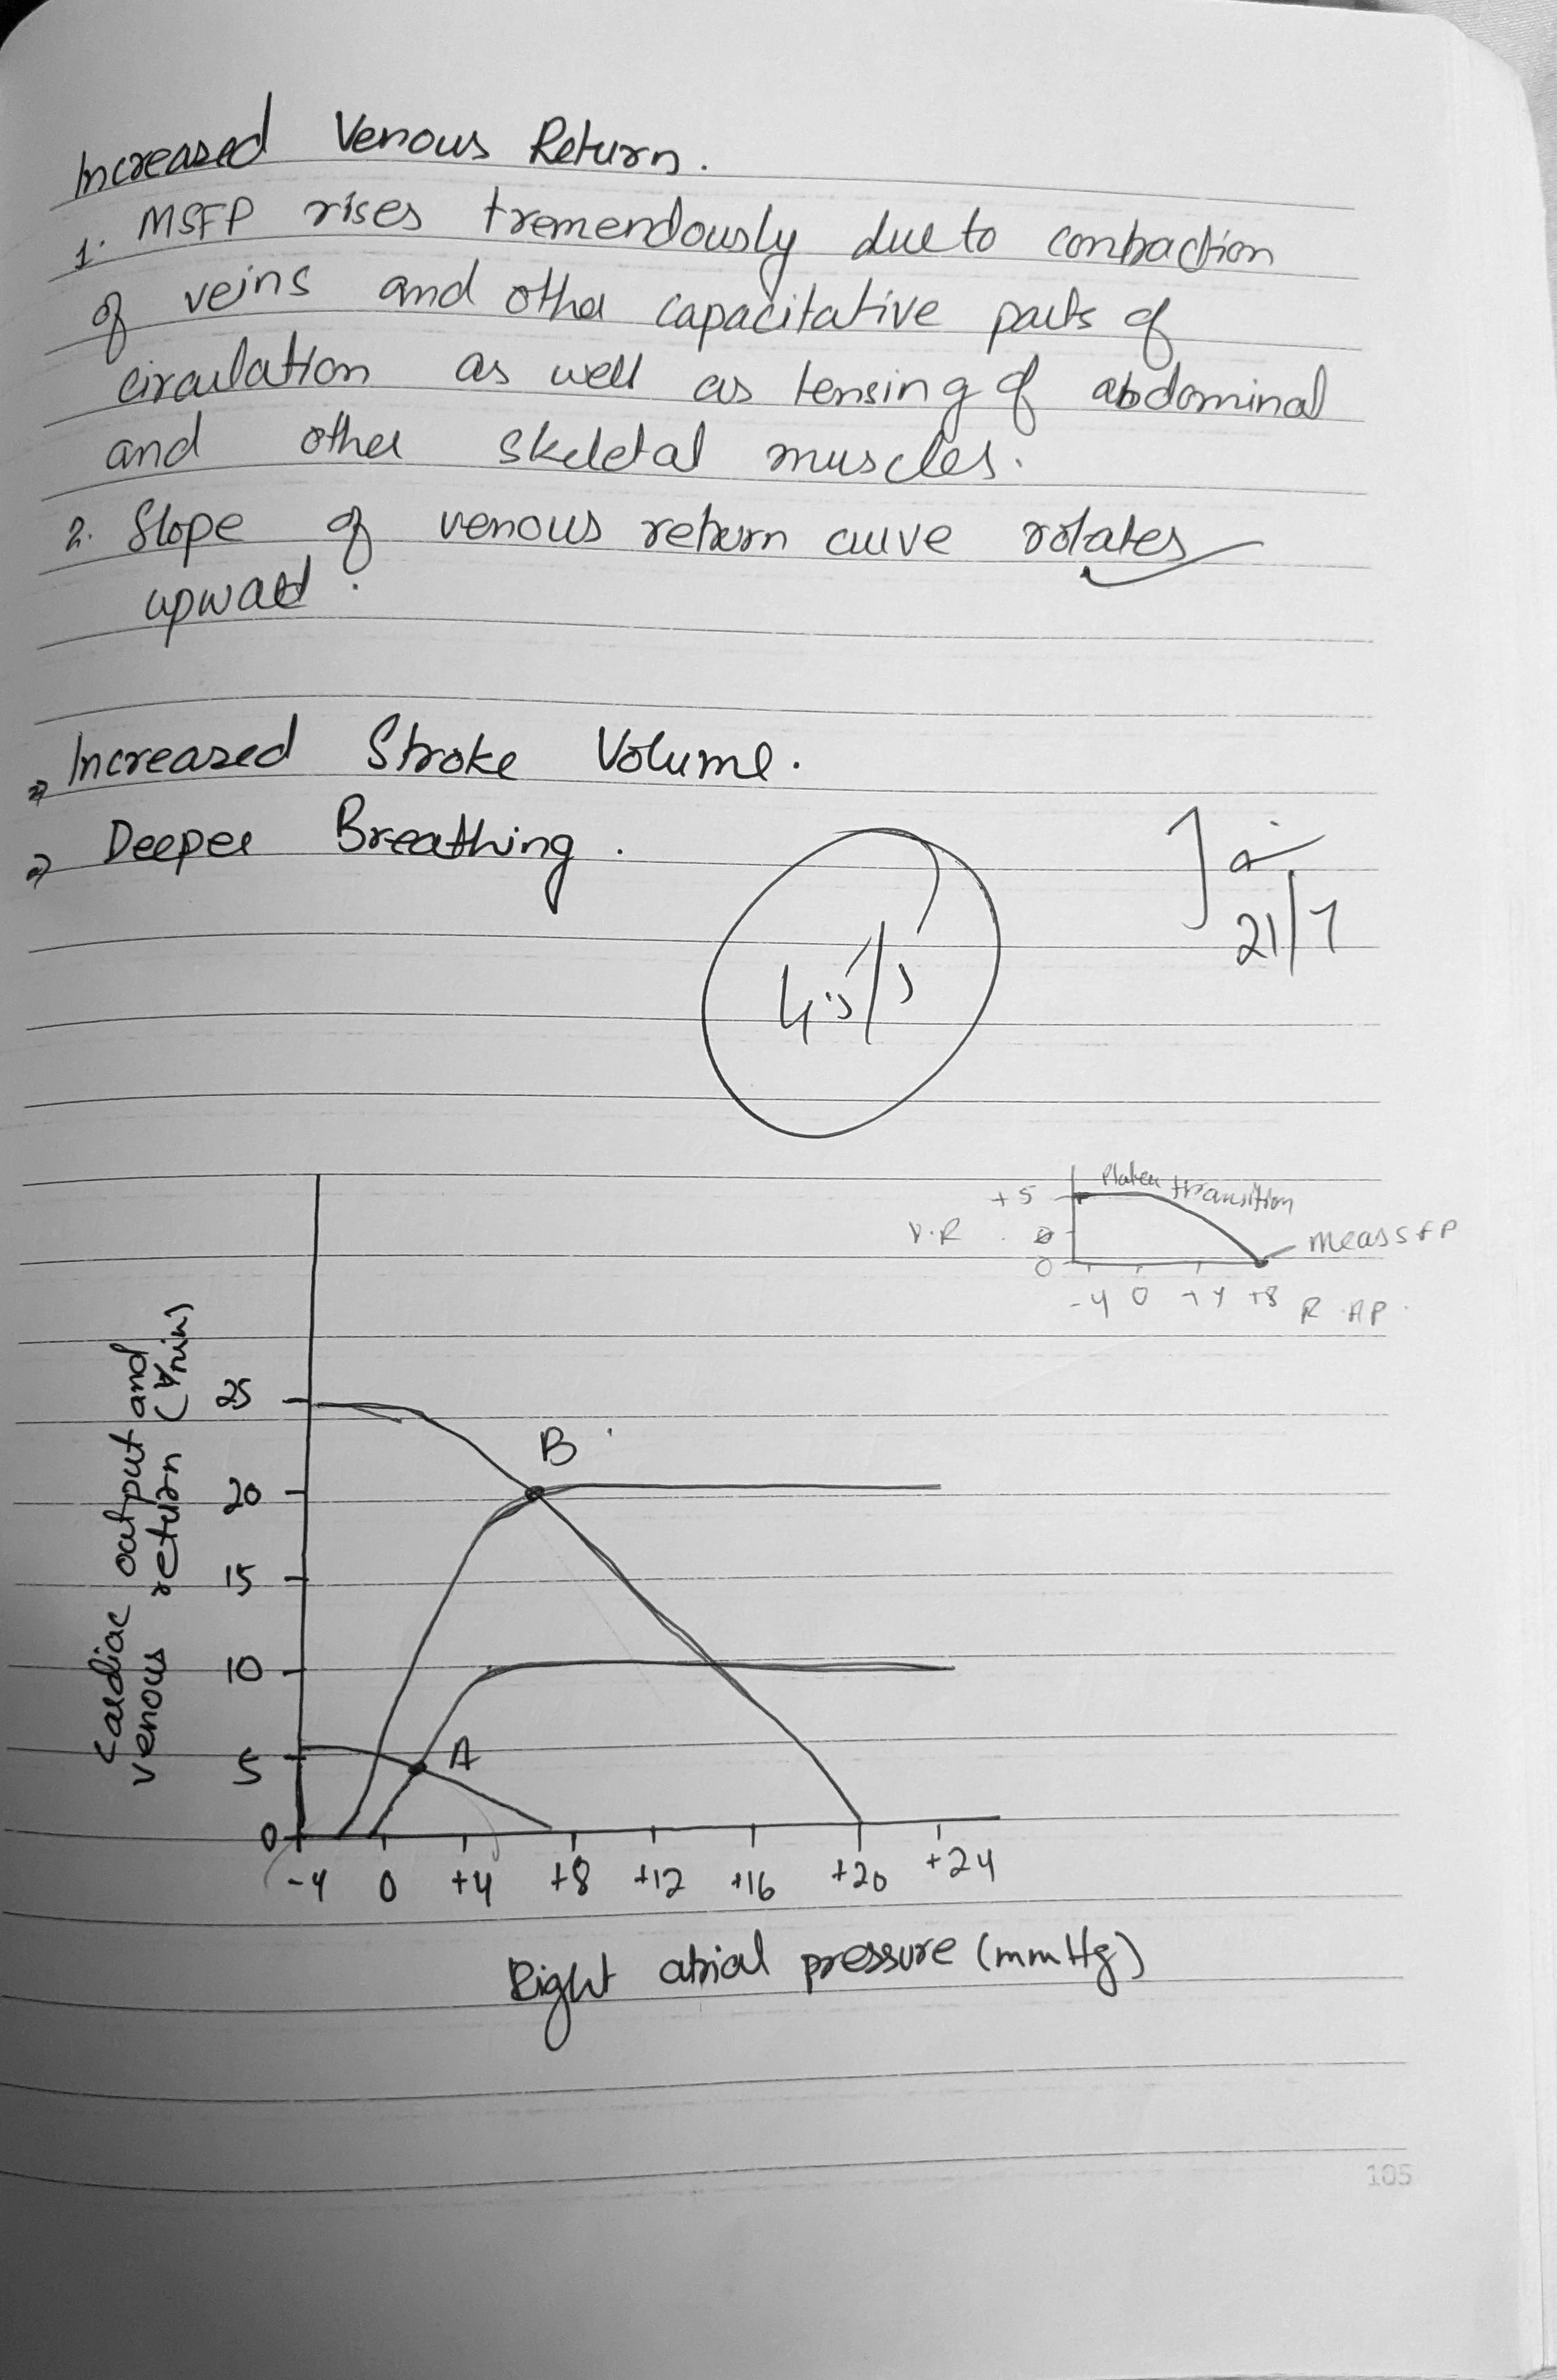 Increased Venous Return.
1. MSFP rises tremendously due to contraction
of veins and other capacitative parts of
circulation as well as tensing of abdominal
and other skeletal muscles.
2. Slope of venous return curve rotates
upward.
Increased Stroke Volume.
Deeper Breathing.
21/7
4.5/5
Plateu transition
+5
V.R
0
0
Mean SFP
-4 0 +4 +8 R.AP.
Cardiac output and
venous return (l/min)
25
20
15
10
5
0
B
A
-4 0 +4 +8 +12 +16 +20 +24
Right atrial pressure (mmHg)
105